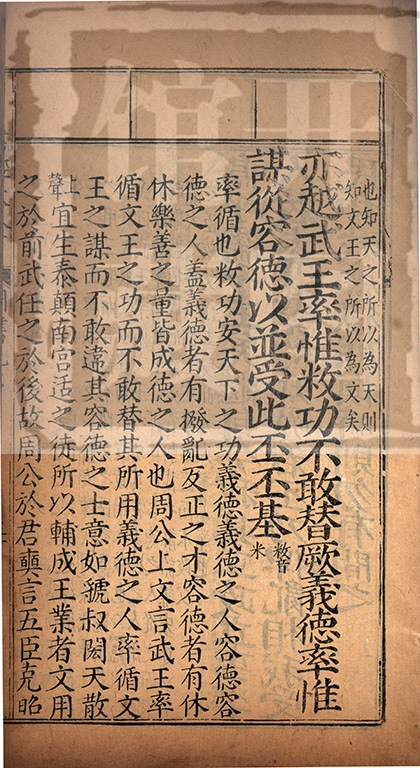 也知天之所以為天則
知文王之所以為文矣
亦越武王率惟敉功不敢替厥義德率惟
謀從容德以並受此丕丕基
敉音
米
率循也敉功安天下之功義德義德之人容德容
德之人蓋義德者有撥亂反正之才容德者有休
休樂善之量皆成德之人也周公上文言武王率
循文王之功而不敢替其所用義德之人率循文
王之謀而不敢違其容德之士意如虢叔閎夭散
上
聲
宜生泰顛南宮适之徒所以輔成王業者文用
之於前武任之於後故周公於君奭言五臣克昭